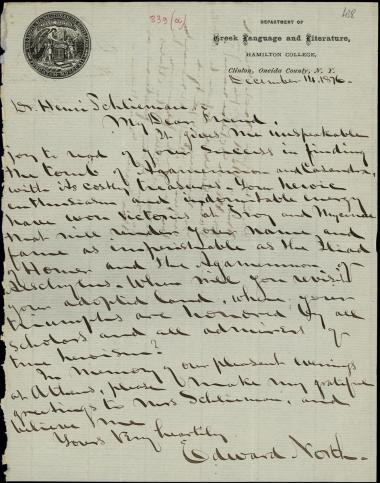 839 (a)
408
DEPARTMENT OF
Greek Language and Literature,
HAMILTON COLLEGE,
Clinton, Oneida County, N. Y.
December 14, 1876.
Dr Henri Schliemann
My Dear Friend,
It gives me unspeakable
joy to read of your success in finding
the tomb of Agamemnon and Cassandra,
with its costly treasures. Your heroic
enthusiasm and indomitable energy
have won victories at Troy and Mycenae
that will render your name and
fame as imperishable as the Iliad
of Homer and the Agamemnon of
Aeschylus. When will you revisit
your adopted land, where your
triumphs are honored by all
scholars and all admirers of
true heroism?
In memory of our pleasant evenings
at Athens, please make my grateful
greetings to Mrs Schliemann, and
believe me
Yours very heartily
Edward North.